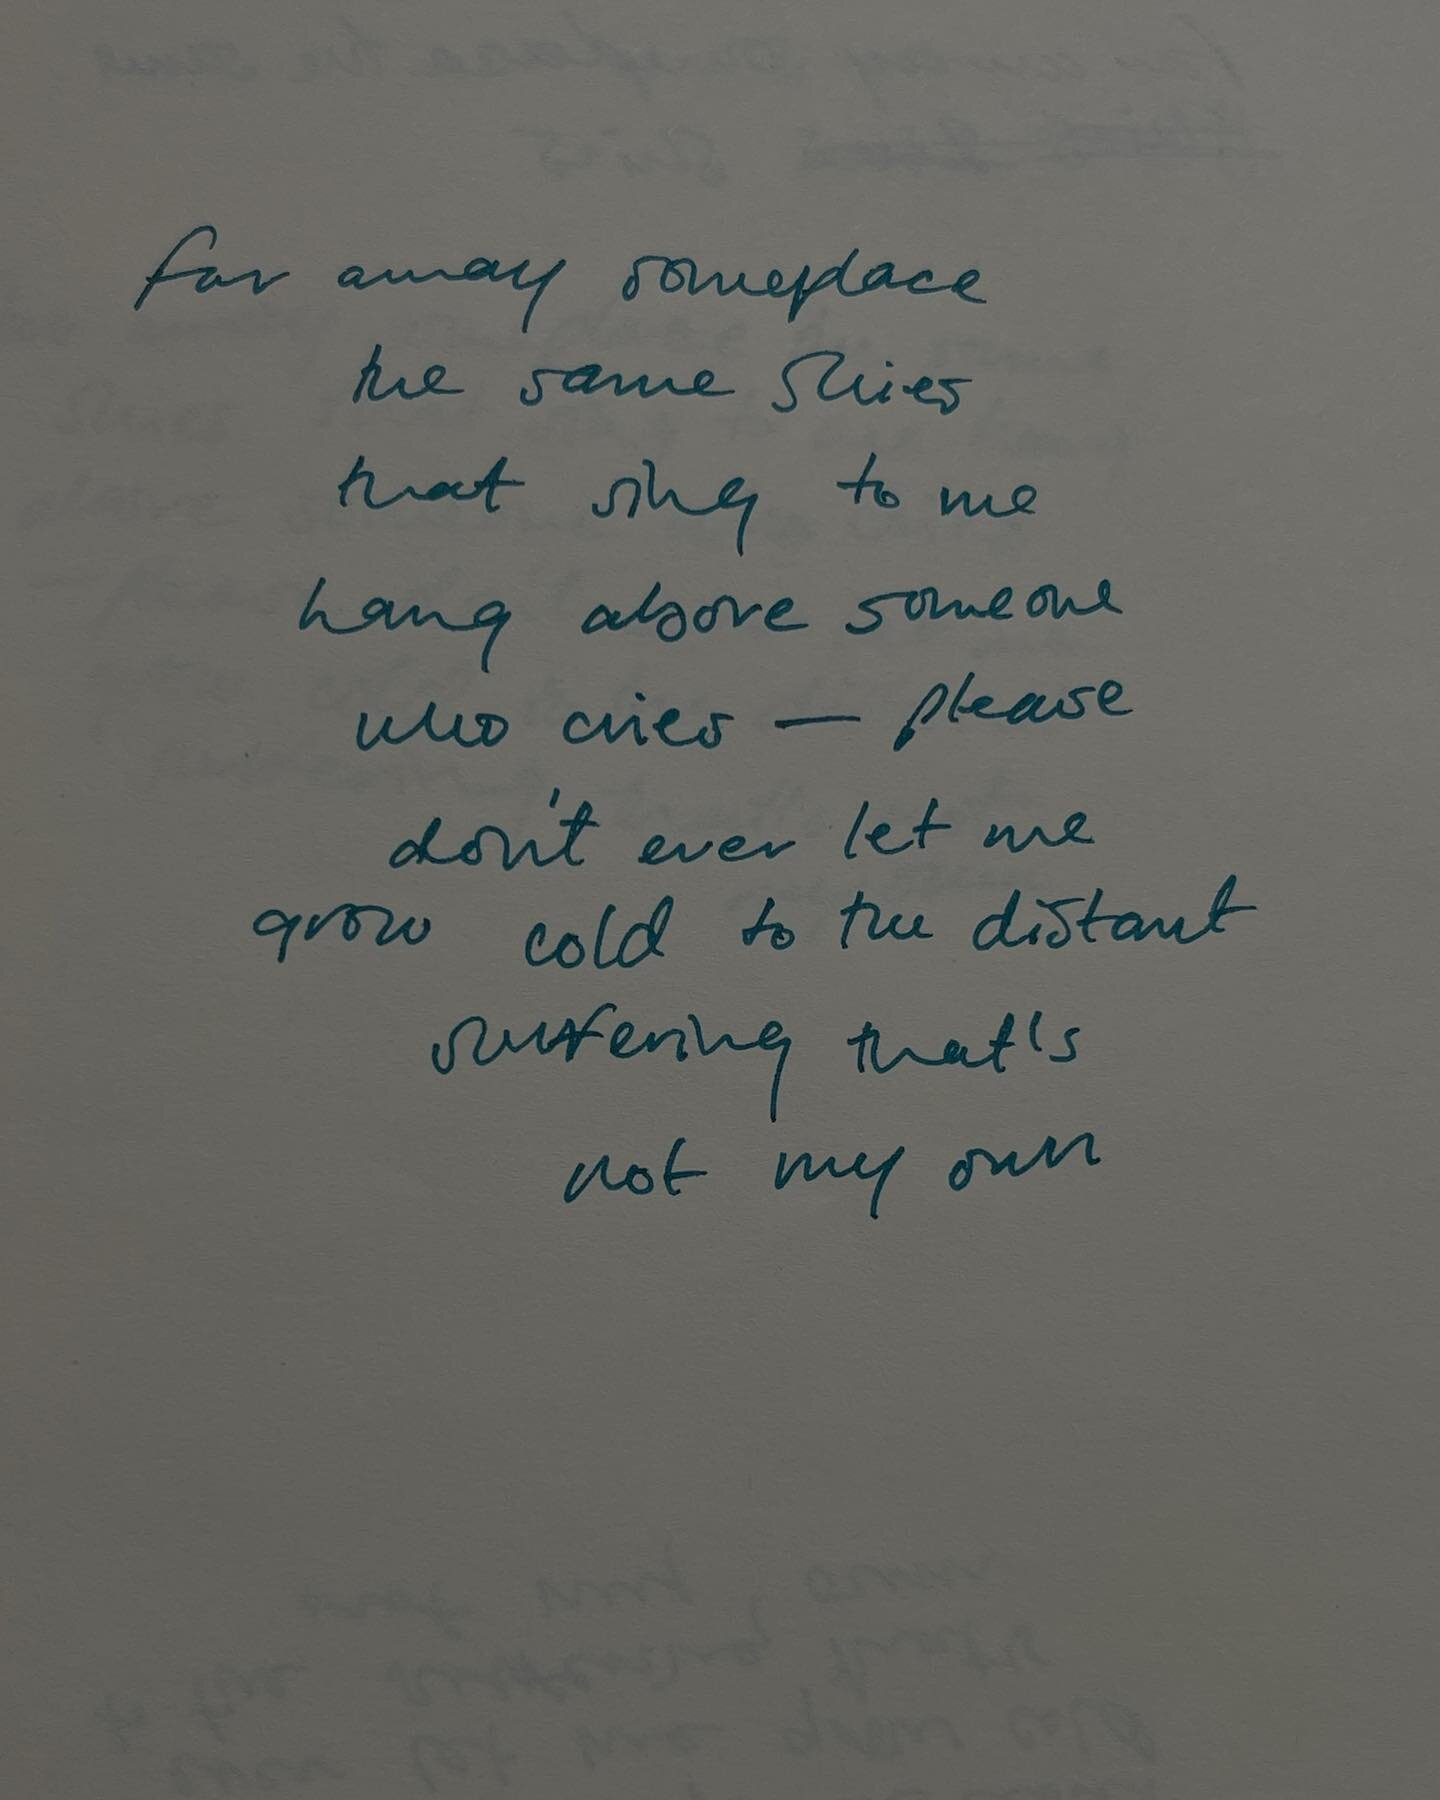 far away someplace
the same skies
that sing to me
hang above someone
who cries — please
don't ever let me
grow cold to the distant
suffering that's
not my own